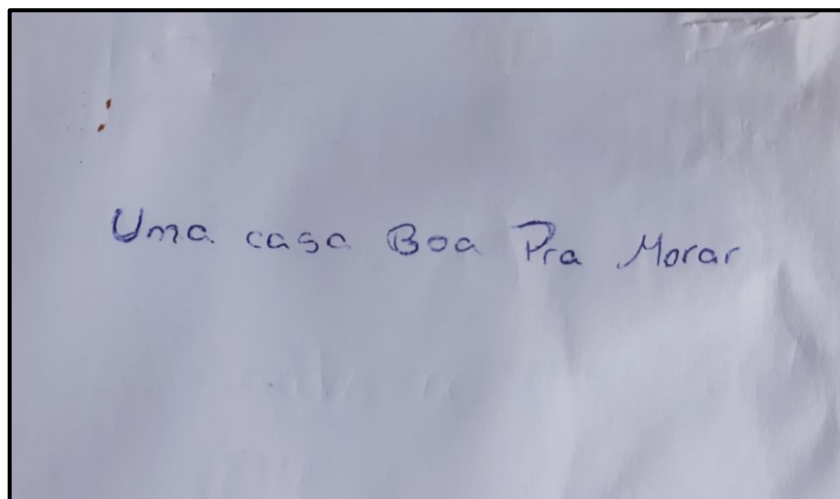 Uma casa Boa Pra Morar